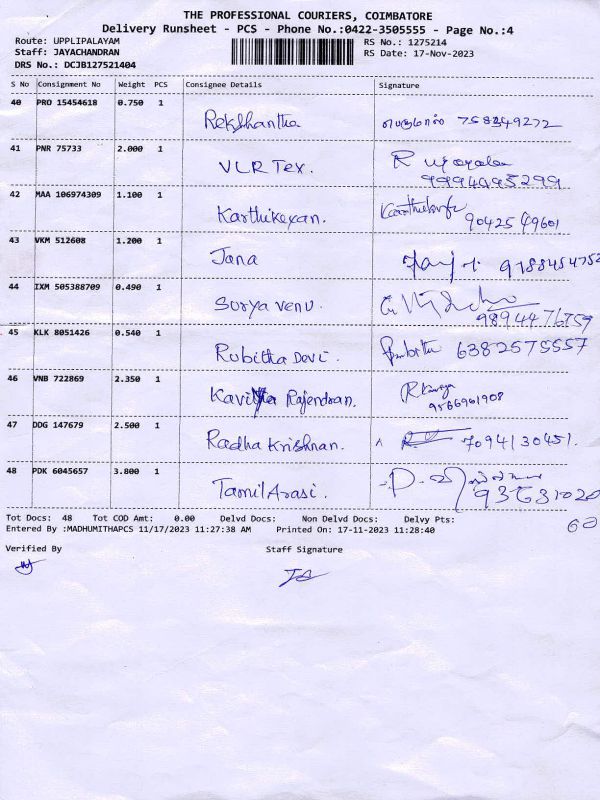 THE PROFESSIONAL COURIERS, COIMBATORE
Delivery Runsheet - PCS - Phone No.:0422-3505555 - Page No.:4
Route: UPPLIPALAYAM RS No.: 1275214
Staff: JAYACHANDRAN RS Date: 17-Nov-2023
DRS No.: DCJB127521404
S No Consignment No Weight PCS Consignee Details Signature
40 PRO 15454618 0.750 1 Rekshantha பெருமாள் 758349272
41 PNR 75733 2.000 1 VLR Tex. R
9994995299
42 MAA 106974309 1.100 1 Karthikeyan.
9042549601
43 VKM 512608 1.200 1 Jana
44 IXM 505388709 0.490 1 Surya venu.
9894476759
45 KLK 8051426 0.540 1 Rubitha Devi. 6382575557
46 VNB 722869 2.350 1 Kavitha Rajendran.
9566961908
47 DDG 147679 2.500 1 Radha Krishnan. 7094130451.
48 PDK 6045657 3.800 1 Tamil Arasi.
Tot Docs: 48 Tot COD Amt: 0.00 Delvd Docs: Non Delvd Docs: Delvy Pts:
Entered By :MADHUMITHAPCS 11/17/2023 11:27:38 AM Printed On: 17-11-2023 11:28:40
Verified By Staff Signature